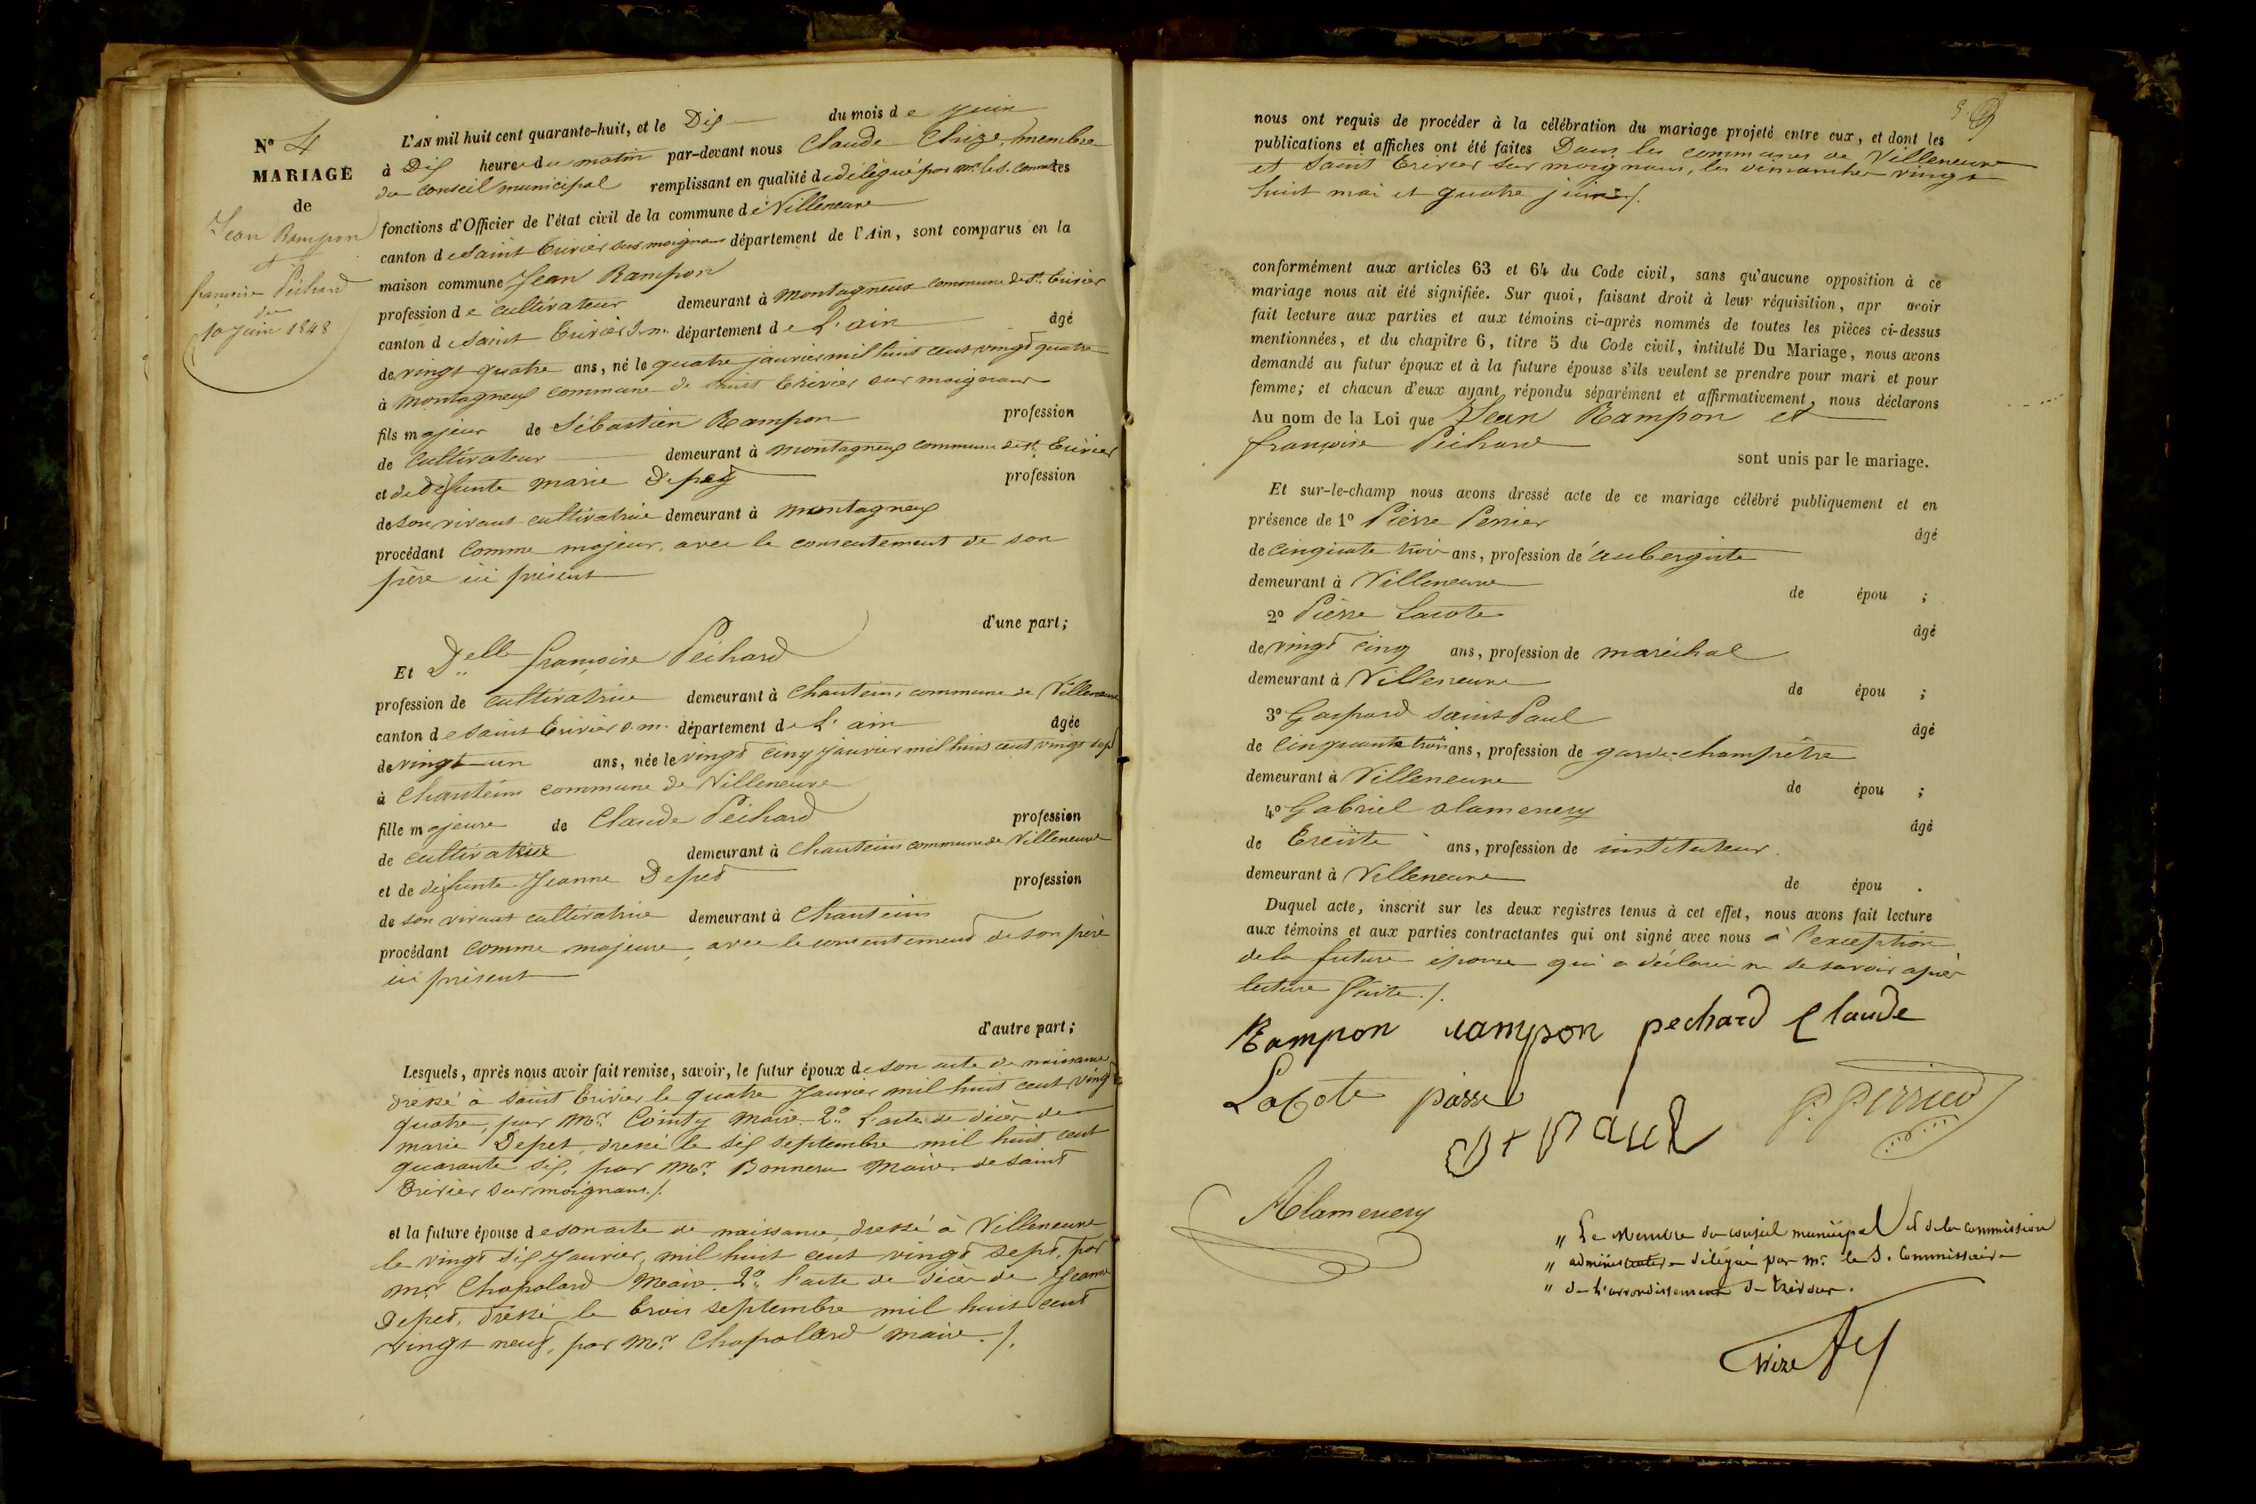 Nº 4
MARIAGE
de
Jean Rampon
et
françoise Péchard
du
10 Juin 1848
L'AN mil huit cent quarante-huit, et le Dix du mois de Juin
à Dix heures du matin par-devant nous Claude Chize, membre
du conseil municipal remplissant en qualité de délégué par mr. le s. commre les
fonctions d'Officier de l'état civil de la commune de Villeneuve
canton de saint Trivier sur moignans département de l'Ain, sont comparus en la
maison commune Jean Rampon
profession de cultivateur demeurant à Montagneux commune de st. Trivier
canton de saint Trivier s.m. département de L'ain âgé
de vingt quatre ans, né le quatre janvier mil huit cent vingt quatre
à Montagneux commune de saint Trivier sur moignans
fils majeur de Sébastien Rampon profession
de cultivateur demeurant à montagneux commune de st. Trivier
et de défunte marie Depret profession
de son vivant cultivatrice demeurant à montagneux
procédant comme majeur, avec le consentement de son
père ici présent
d'une part;
Et Delle françoise Péchard
profession de cultivatrice demeurant à Chanteins commune de Villeneuve
canton de saint Trivier s.m. département de L'ain âgée
de vingt-un ans, née le vingt cinq janvier mil huit cent vingt sept
à Chanteins commune de Villeneuve
fille majeure de Claude Péchard profession
de cultivateur demeurant à Chanteins commune de Villeneuve
et de défunte Jeanne Depret profession
de son vivant cultivatrice demeurant à Chanteins
procédant comme majeure, avec le consentement de son père
ici présent
d'autre part;
Lesquels, après nous avoir fait remise, savoir, le futur époux de son acte de naissance
dressé à saint Trivier le quatre Janvier mil huit cent vingt
quatre, par Mr. Cointy Maire 2º L'acte de décès de
marie Depret, dressé le six septembre mil huit cent
quarante six, par Mr. Bonnera Maire de saint
Trivier sur moignans ./.
et la future épouse de son acte de naissance dressé à Villeneuve
le vingt six Janvier, mil huit cent vingt sept, par
mr. Chapolard Maire 2º l'acte de décès de Jeanne
Depret, dressé le trois septembre mil huit cent
vingt neuf, par Mr. Chapolard maire ./.
nous ont requis de procéder à la célébration du mariage projeté entre eux, et dont les
publications et affiches ont été faites Dans les communes de Villeneuve
et saint Trivier sur moignans, les dimanches vingt
huit mai et quatre juin ./.
conformément aux articles 63 et 64 du Code civil, sans qu'aucune opposition à ce
mariage nous ait été signifiée. Sur quoi, faisant droit à leur réquisition, apr avoir
fait lecture aux parties et aux témoins ci-après nommés de toutes les pièces ci-dessus
mentionnées, et du chapitre 6, titre 5 du Code civil, intitulé Du Mariage, nous avons
demandé au futur époux et à la future épouse s'ils veulent se prendre pour mari et pour
femme; et chacun d'eux ayant répondu séparément et affirmativement, nous déclarons
Au nom de la Loi que Jean Rampon et
françoise Péchard
sont unis par le mariage.
Et sur-le-champ nous avons dressé acte de ce mariage célébré publiquement et en
présence de 1º Pierre Perrier
âgé
de cinquante trois ans, profession de aubergiste
demeurant à Villeneuve
de épou ;
2º Pierre Lacote
âgé
de vingt cinq ans, profession de maréchal
demeurant à Villeneuve
de épou ;
3º Gaspard saint Paul
âgé
de cinquante trois ans, profession de garde-champêtre
demeurant à Villeneuve
de épou ;
4º Gabriel Alamercery
âgé
de Trente ans, profession de instituteur.
demeurant à Villeneuve
de épou .
Duquel acte, inscrit sur les deux registres tenus à cet effet, nous avons fait lecture
aux témoins et aux parties contractantes qui ont signé avec nous à l'exception
de la future épouse qui a déclaré ne le savoir après
lecture faite ./.
Rampon rampon pechard Claude
Lacote
St Paul
Alamercery
" Le Membre du conseil municipal et de la commission
" administrative délégué par mr. le s. Commissaire
" de l'arrondissement de Trévoux.
Chize